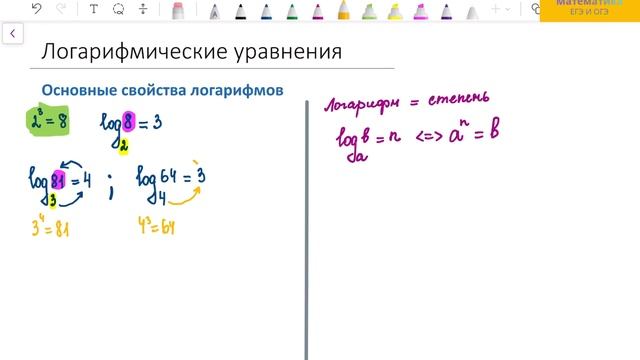 Математика
ЕГЭ И ОГЭ
Логарифмические уравнения
Основные свойства логарифмов
2³ = 8
log₂ 8 = 3
log₃ 81 = 4 ; log₄ 64 = 3
3⁴ = 81
4³ = 64
Логарифм = степень
logₐ b = n <=> aⁿ = b